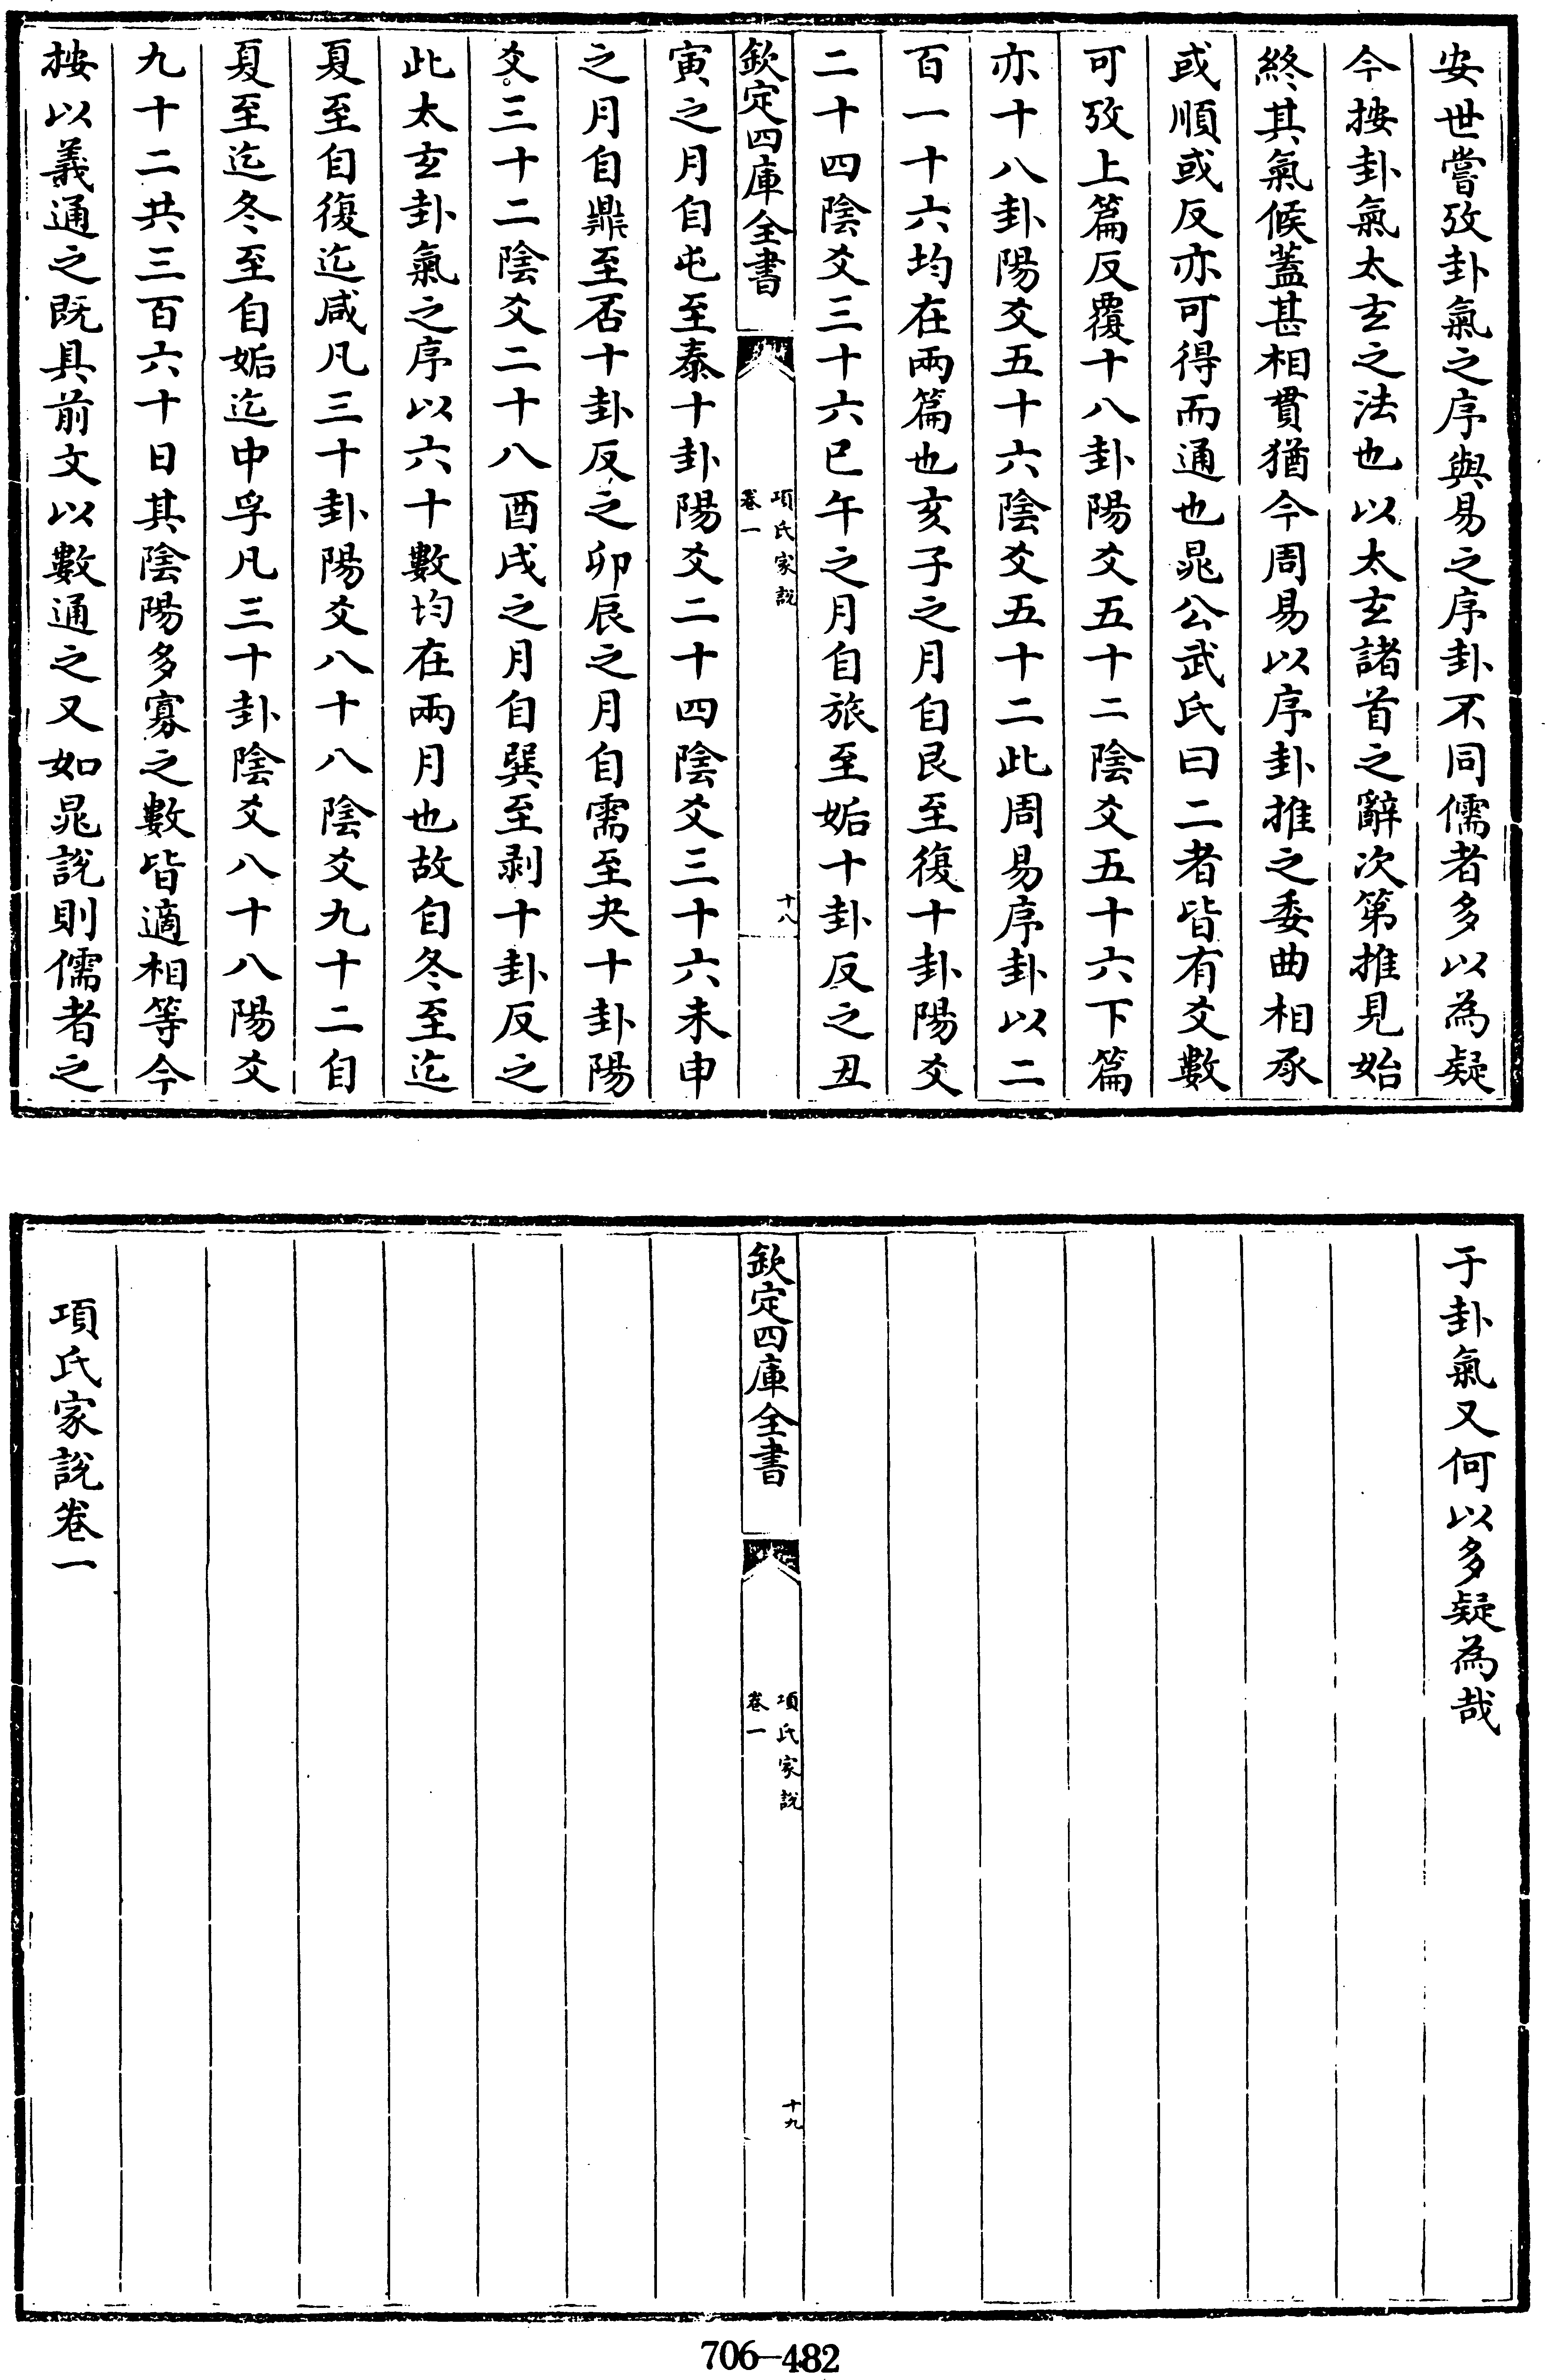 安世嘗攷卦氣之序與易之序卦不同儒者多以為疑
今按卦氣太玄之法也以太玄諸首之辭次第推見始
終其氣候蓋甚相貫猶今周易以序卦推之委曲相承
或順或反亦可得而通也晁公武氏曰二者皆有爻數
可攷上篇反覆十八卦陽爻五十二陰爻五十六下篇
亦十八卦陽爻五十六陰爻五十二此周易序卦以二
百一十六均在兩篇也亥子之月自艮至復十卦陽爻
二十四陰爻三十六巳午之月自旅至姤十卦反之丑
欽定四庫全書
項氏家說
卷一
十八
寅之月自屯至泰十卦陽爻二十四陰爻三十六未申
之月自鼎至否十卦反之卯辰之月自需至夬十卦陽
爻三十二陰爻二十八酉戌之月自巽至剥十卦反之
此太玄卦氣之序以六十數均在兩月也故自冬至迄
夏至自復迄咸凡三十卦陽爻八十八陰爻九十二自
夏至迄冬至自姤迄中孚凡三十卦陰爻八十八陽爻
九十二共三百六十日其陰陽多寡之數皆適相等今
按以義通之既具前文以數通之又如晁說則儒者之
于卦氣又何以多疑為哉
欽定四庫全書
項氏家說
卷一
十九
項氏家說卷一
706-482